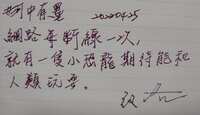 20220425
網路每斷線一次，
就有一隻小恐龍期待能和
人類玩耍。